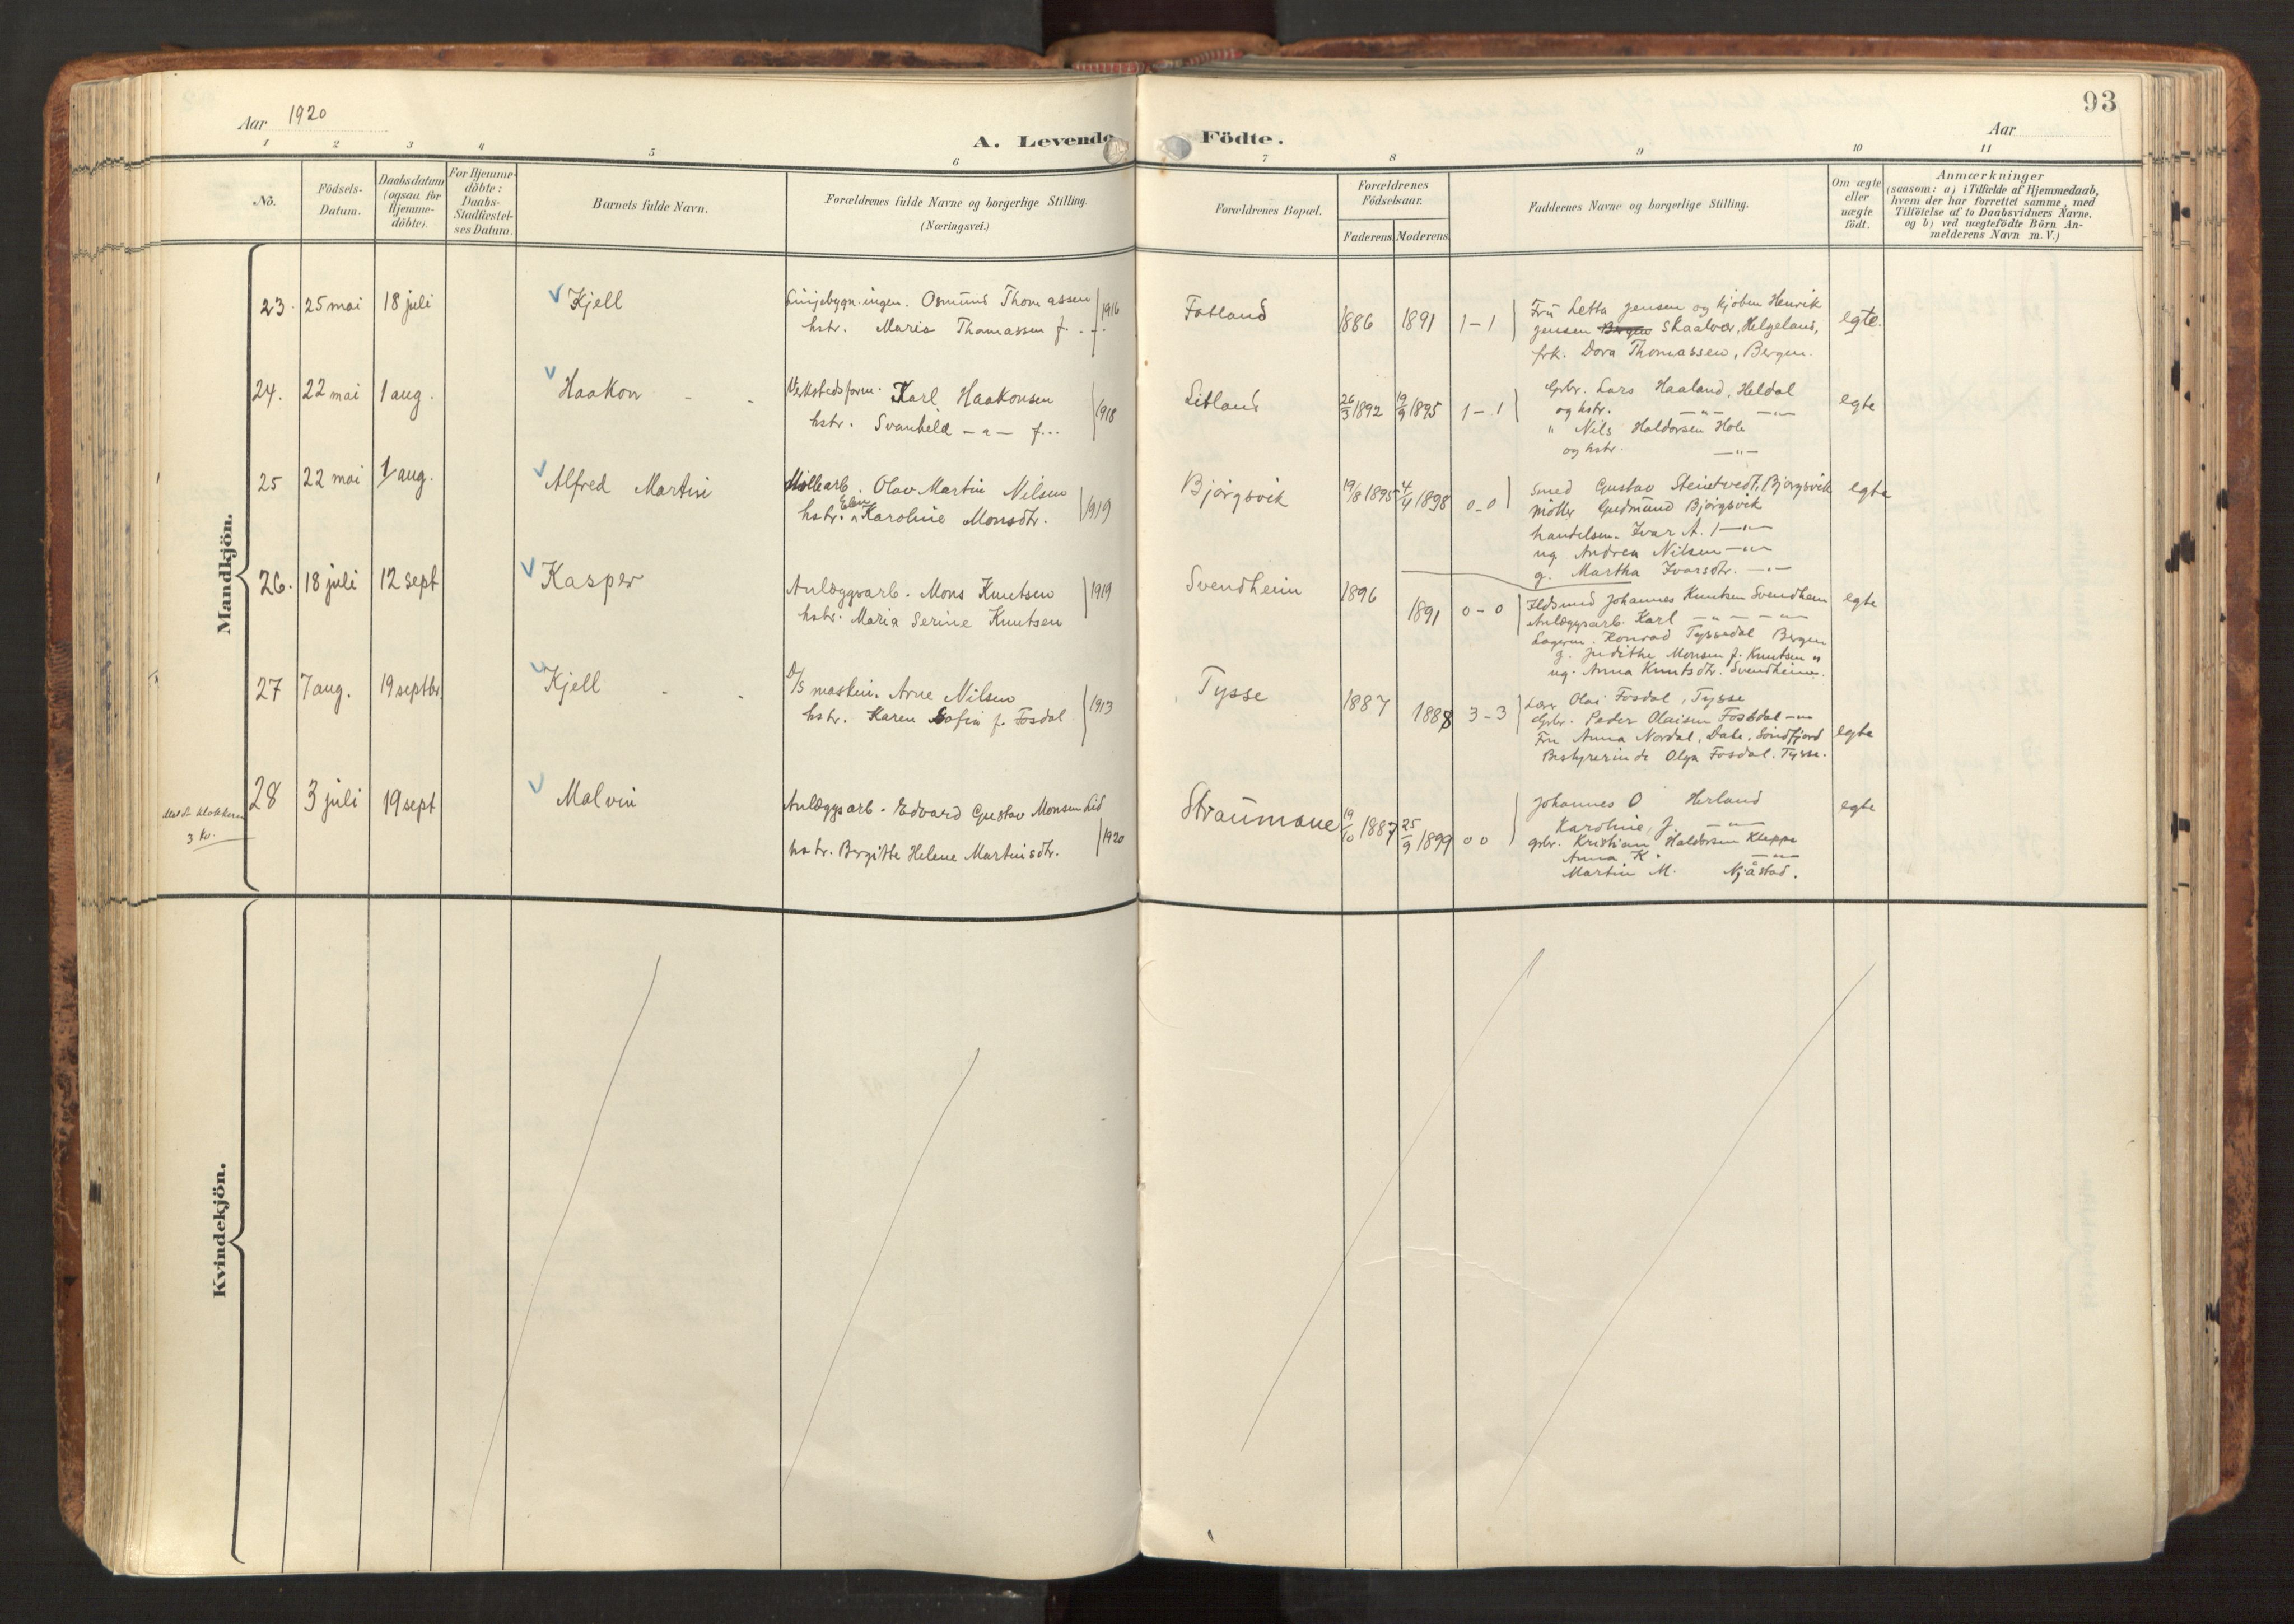 Aar 1920
A. Levende Födte.
93
Aar
1 2 3 4 5 6 7 8 9 10 11
Nö.
Födsels-Datum.
Daabsdatum (ogsaa för Hjemme-döbte).
For Hjemme-döbte: Daabs-Stadfæstel-ses Datum.
Barnets fulde Navn.
Forældrenes fulde Navne og borgerlige Stilling.
(Næringsvei.)
Forældrenes Bopæl.
Forældrenes Födselsaar.
Faderens. Moderens.
Faddernes Navne og borgerlige Stilling.
Om ægte eller uægte födt.
Anmærkninger
(saasom: a) i Tilfælde af Hjemmedaab,
hvem der har forrettet samme, med
Tilföielse af to Daabsvidners Navne,
og b) ved uægtefödte Börn An-
melderens Navn m. V.)
Mandkjön.
23. 25 mai 18 juli Kjell
Linjebygn. ingen. Osmund Thomassen
hstr. Maria Thomassen f. - - 1916
Fotland 1886 1891 1-1
Fru Letta Jensen og kjöbm Henrik
Jensen Bergen Skaalvær, Helgeland,
frk. Dora Thomassen, Bergen.
egte.
24. 22 mai 1 aug. Haakon - -
Verkstedsform. Karl Haakonsen
hstr. Svanhild -"- f... 1918
Litland 26/3 1892 19/9 1895 1-1
Grbr. Lars Haaland, Heldal
og hstr. -"- -"-
" Nils Haldorsen Hole
og hstr. -"-
egte
25 22 mai 1 aug. Alfred Martin
Möllearb. Olav Martin Nilsen
hstr. Elen Karoline Monsdtr. 1919
Bjørgsvik 19/8 1895 4/4 1898 0-0
Smed Gustav Steintvedt, Bjørgsvik
möller Gudmund Bjørgsvik
handelsm. Ivar A. -"-
ug. Andrea Nilsen -"-
g. Martha Ivarsdtr. -"-
egte
26. 18 juli 12 sept Kasper
Anlægsarb. Mons Knutsen
hstr. Maria Serine Knutsen 1919
Svendheim 1896 1891 0-0
Johannes Knutsen Svendheim
Anlægsarb. Karl -"- -"-
Lagerm. Konrad Tyssedal Bergen
g. Judithe Monsen f. Knutsen "
ug. Anna Knutsdtr. Svendheim.
egte
27 7 aug. 19 septbr Kjell - -
D/S maskin. Arne Nilsen
hstr. Karen Sofie f. Fosdal 1913
Tysse 1887 1888 3-3
Lærer Olai Fosdal, Tysse
Grbr. Peder Olaisen Fossdal -"-
Fru Anna Nordal, Dale, Söndfjord
Bestyrerinde Olga Fosdal. Tysse.
egte
28 3 juli 19 sept Malvin
3 kr.
Anlægsarb. Edvard Gustav Monsen Lid
hstr. Bergitte Helene Martinsdtr. 1920
Straumane 19/10 1887 25/9 1899 0 0
Johannes O Herland
Karoline J. -"-
grbr. Kristian Haldorsen Kleppe
Anna K. -"-
Martin M. Njåstad.
egte
Kvindekjön.